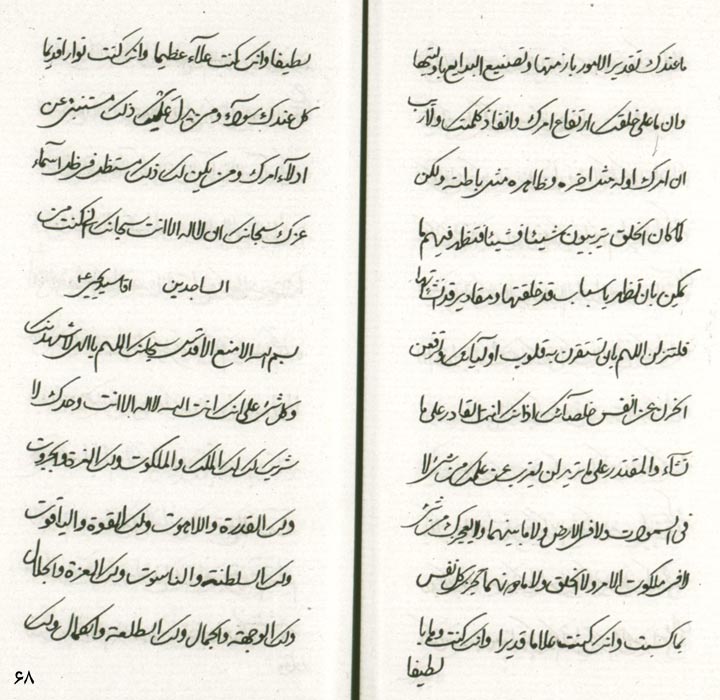 ما عندك تقدير الامور بازمتها وتصنيع البدايع باوليتها
وان ما على خلقك ارتفاع امرك وانفاذ كلمتك ولا
ان امرك اوله مثل اخره وظاهره مثل باطنه ولكن
لما كان الخلق يتربيون شيئا فشيئا فتظهر فيهم ما
يمكن بان تظهر باسباب قد خلقتها ومقادير قدرتها
فلتنزلن اللهم بان تستقرن به قلوب اوليائك وترفعن
الحزن عن انفس خلصائك اذ انك انت القادر على ما
تشاء والمقتدر على ما تريد لن يعزب عن علمك من شئ لا
فى السموات ولا فى الارض ولا ما بينهما ولا يعجزك من شئ
لا فى ملكوت الامر والخلق ولا ما دونهما تجزى كل نفس
بما كسبت وانك كنت علاما قديرا وانك كنت وهابا
لطيفا
لطيفا وانك كنت علاء عظيما وانك كنت نوارا قديما
كل عندك سواء ومن يدل عليك ذلك مستنبئ عن
ادلاء امرك ومن يكن لك ذلك مستظل فى ظل اسماء
عزك سبحانك ان لا اله الا انت سبحانك انى كنت من
الساجدين
بسم الله الامنع الاقدس سبحانك اللهم يا الهى لاشهدنك
وكل شئ على انك انت الله لا اله الا انت وحدك لا
شريك لك لك الملك والملكوت ولك العزة والجبروت
ولك القدرة واللاهوت ولك القوة والياقوت
ولك السلطنة والناسوت ولك العزة والجلال
ولك الوجهة والجمال ولك الطلعة والكمال ولك
۶۸